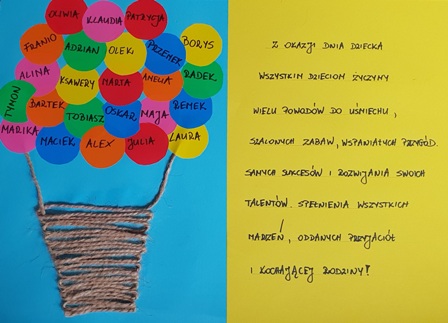 OLIWIA
KLAUDIA
PATRYCJA
FRANIO
ADRIAN
OLEK
PRZEMEK
BORYS
ALINA
KSAWERY
MARTA
AMELIA
RADEK
TYMON
BARTEK
TOBIASZ
OSKAR
MAJA
REMEK
MARIKA
MACIEK
ALEX
JULIA
LAURA
Z OKAZJI DNIA DZIECKA
WSZYSTKIM DZIECIOM ŻYCZYMY
WIELU POWODÓW DO UŚMIECHU,
SZALONYCH ZABAW, WSPANIAŁYCH PRZYGÓD.
SAMYCH SUKCESÓW I ROZWIJANIA SWOICH
TALENTÓW. SPEŁNIENIA WSZYSTKICH
MARZEŃ, ODDANYCH PRZYJACIÓŁ
I KOCHAJĄCEJ RODZINY!